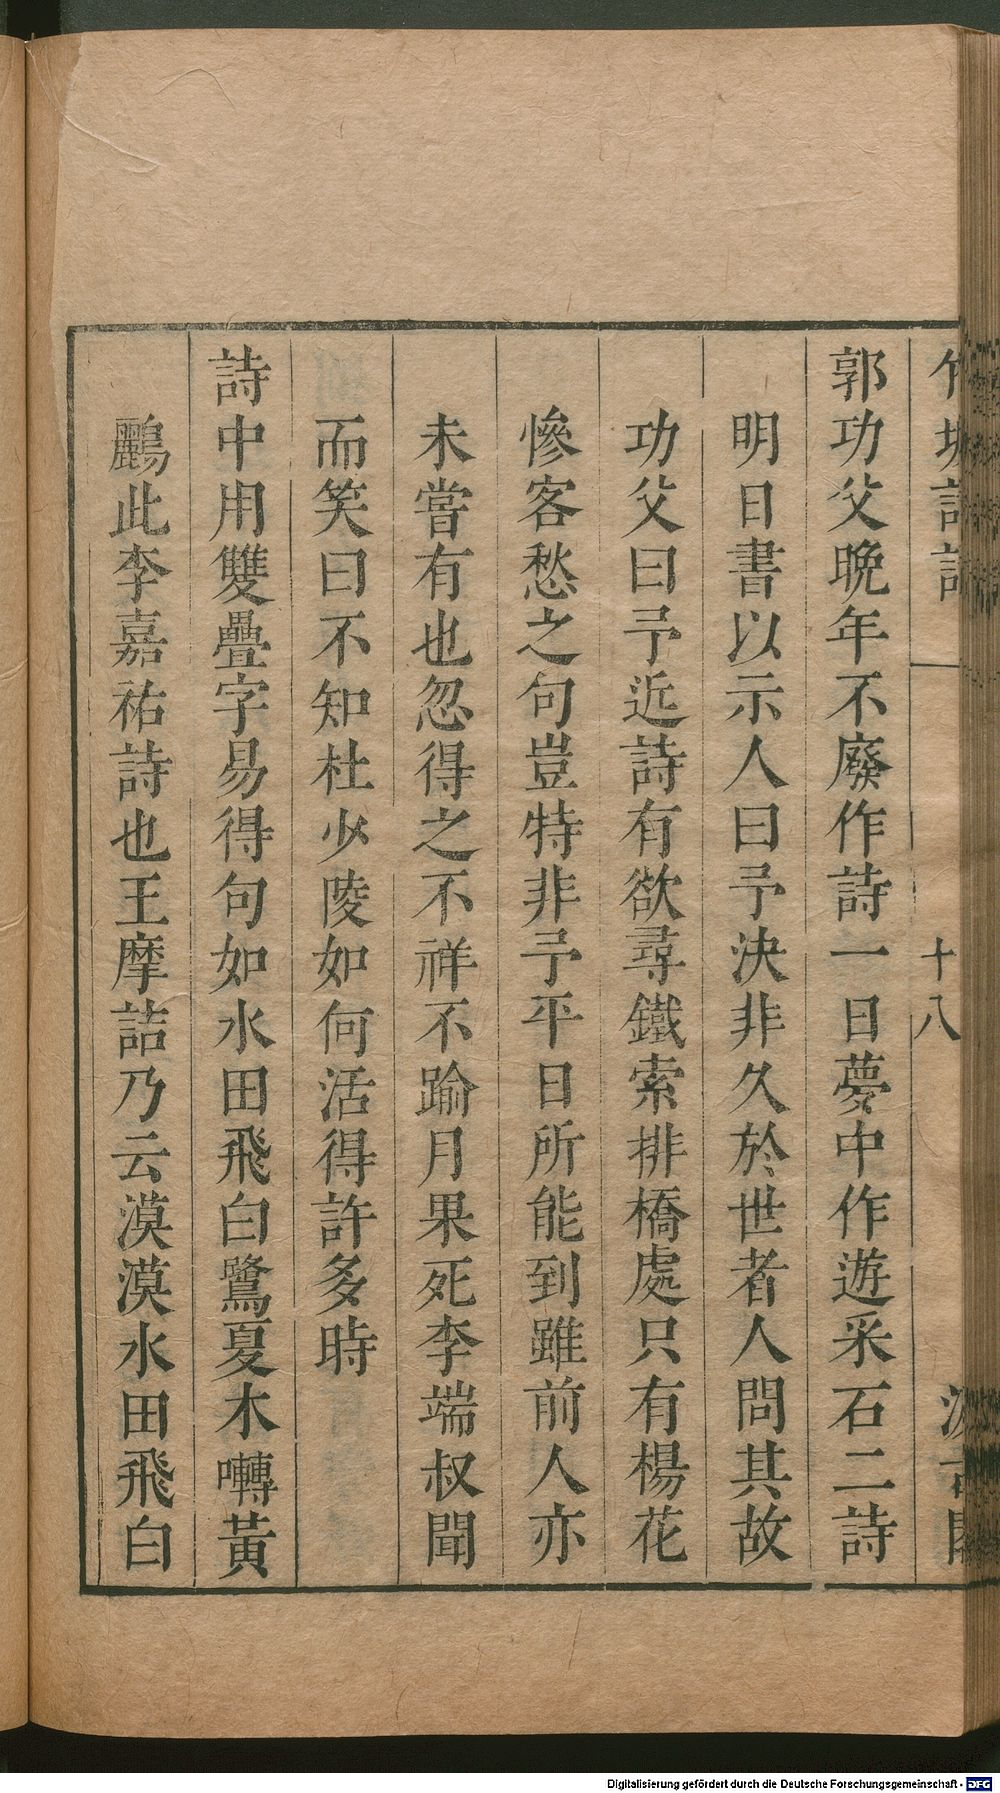 郭功父晚年不廢作詩一日夢中作遊采石二詩
明日書以示人曰予決非久於世者人問其故
功父曰予近詩有欲尋鐵索排橋處只有楊花
慘客愁之句豈特非予平日所能到雖前人亦
未嘗有也忽得之不祥不踰月果死李端叔聞
而笑曰不知杜少陵如何活得許多時
詩中用雙疊字易得句如水田飛白鷺夏木囀黃
鸝此李嘉祐詩也王摩詰乃云漠漠水田飛白
十八
Digitalisierung gefördert durch die Deutsche Forschungsgemeinschaft - DFG